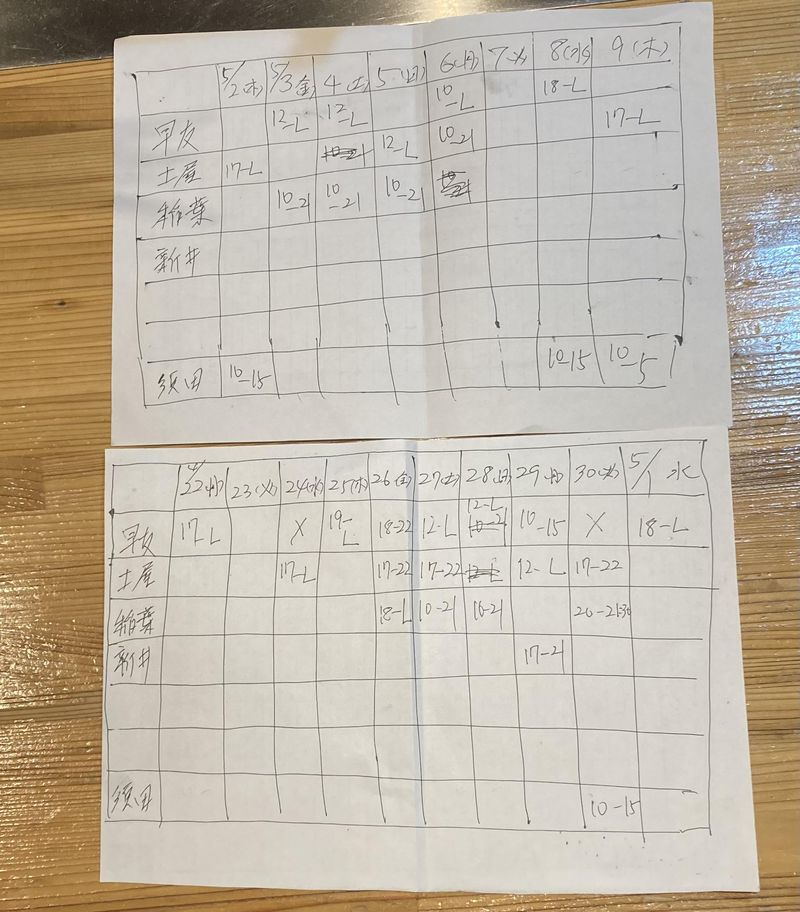 5/2(木) 5/3(金) 4(土) 5(日) 6(月) 7(火) 8(水) 9(木)
早友 12-L 12-L 10-L 18-L 17-L
土屋 17-L 10-21 12-L 10-21
稲葉 10-21 10-21 10-21
新井
須田 10-15 10-15 10-5
4/22(月) 23(火) 24(水) 25(木) 26(金) 27(土) 28(日) 29(月) 30(火) 5/1 水
早友 17-L X 19-L 18-22 12-L 12-L 10-21 10-15 X 18-L
土屋 17-L 17-22 17-22 12-L 12-L 17-22
稲葉 18-L 10-21 10-21 20-21:30
新井 17-21
須田 10-15